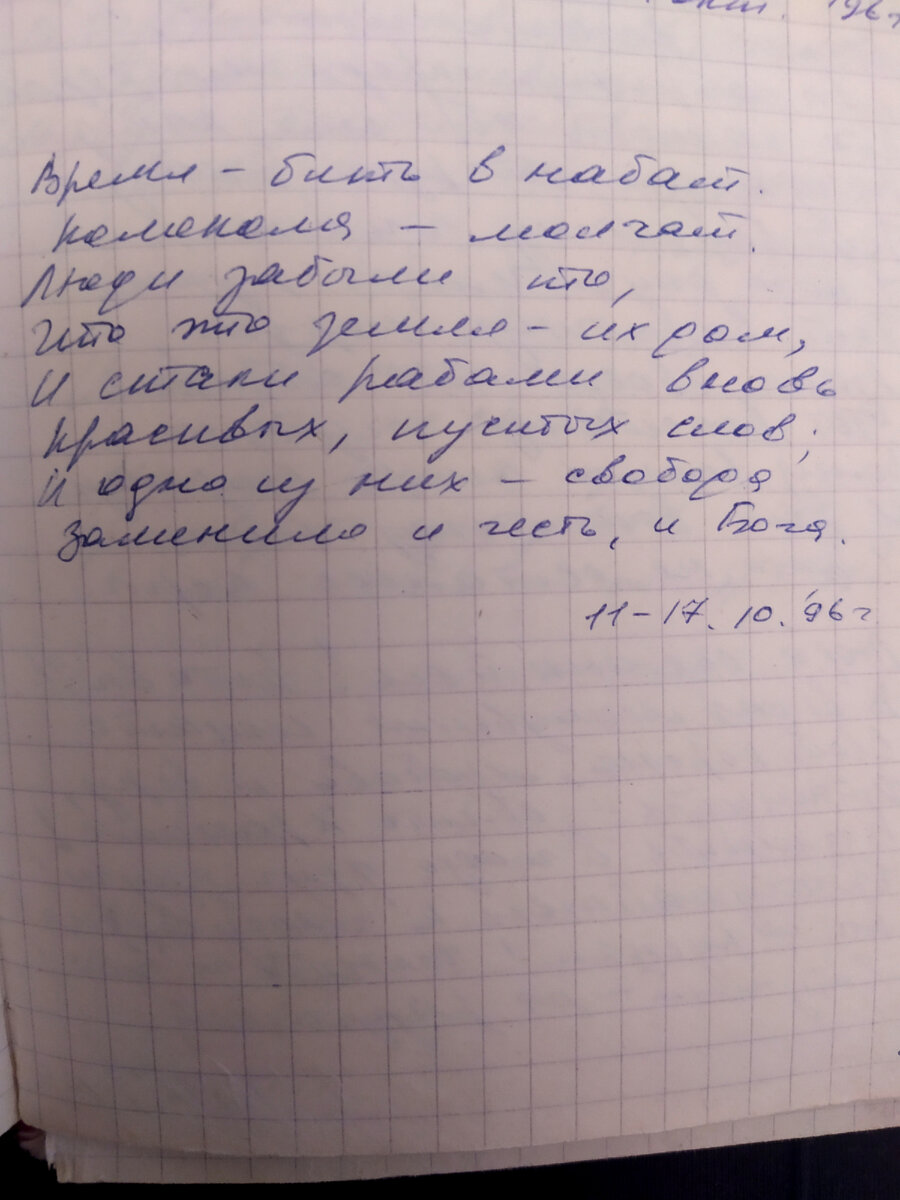 Время – бить в набат.
Колокола – молчат.
Люди забыли кто,
Что это земля – их дом,
И стали рабами вновь
Красивых, пустых слов;
И одно из них – свобода
Заменило и честь, и Бога.
11–17. 10. '96 г